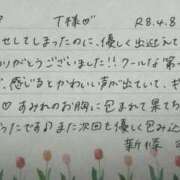 T様♡ R8.4.8
せしてしまったのに、優しく出迎えて
りがとうございました!!クールな第一
、感じるとかわいい声が出ていて、ギ
♡すみれのお胸に包まれて果てち
ったです♪また次回も優しく包み込
新様